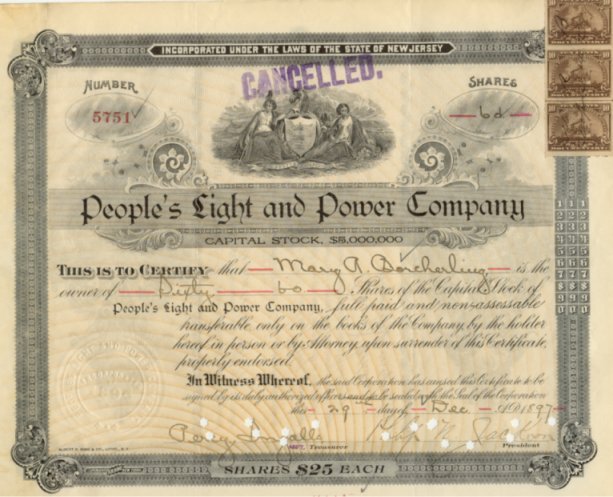 INCORPORATED UNDER THE LAWS OF THE STATE OF NEW JERSEY
CANCELLED.
NUMBER
5751
SHARES
60
People's Light and Power Company
CAPITAL STOCK, $5,000,000
THIS IS TO CERTIFY that Mary A. Borcherling is the
owner of Sixty 60 Shares of the Capital Stock of
People's Light and Power Company, full paid and non-assessable
transferable only on the books of the Company, by the holder
hereof in person or by Attorney, upon surrender of this Certificate
properly endorsed.
In Witness Whereof, the said Corporation has caused this Certificate to be
signed by its duly authorized officers and to be sealed with the Seal of the Corporation
this 29th day of Dec A.D. 1897
Treasurer
President
SHARES $25 EACH